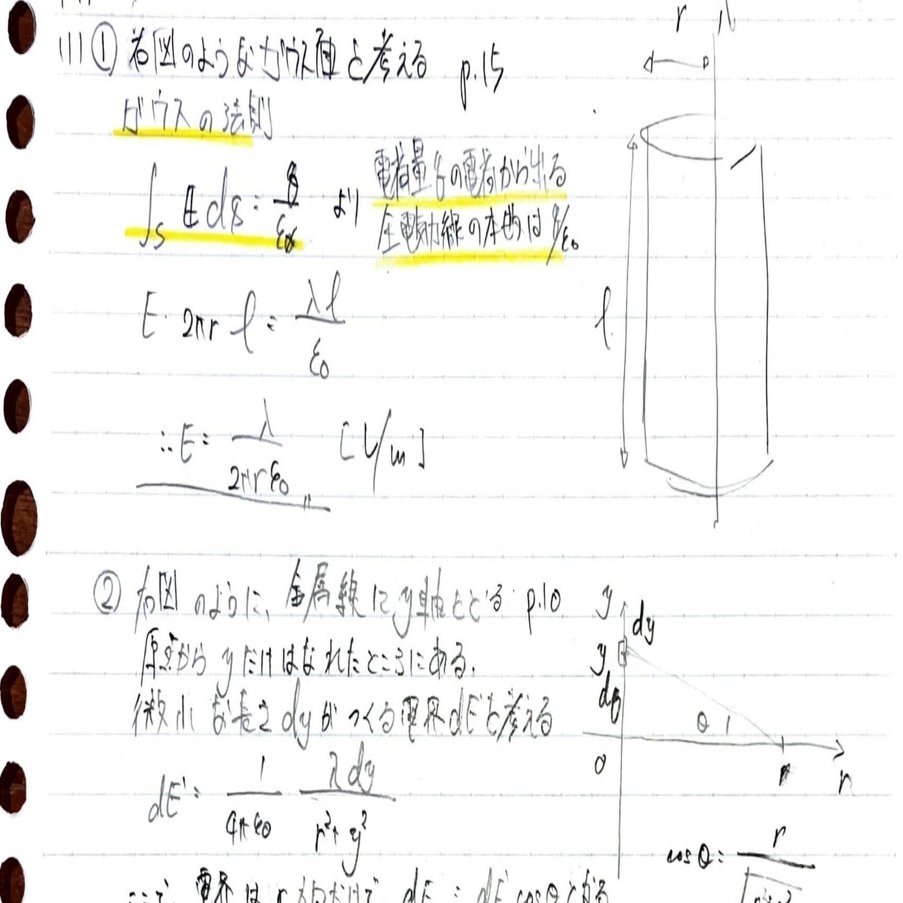 (1) ① 右図のようなガウス面を考える p.15
ガウスの法則
∫s E ds = q/ε0 より 電荷量qの電荷から出る
全電気力線の本数は q/ε0
E・2πr l = λl/ε0
∴E = λ/2πrε0 [V/m]
r
l
② 右図のように、金属線にy軸をとる p.10
原点から yだけはなれたところにある、
微小な長さ dyがつくる電界dE'を考える
dE' = 1/4πε0 λdy/r²+y²
y
dy
y
dq
θ
0
r
r
cosθ = r/√r²+y²
ここで、電界はr方向だけで dE = dE'cosθとなる